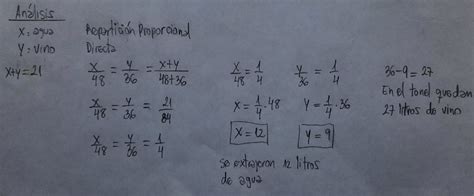 Análisis
X = agua
Y = vino
x+y = 21
Repartición Proporcional
Directa
x/48 = y/36 = x+y/48+36
x/48 = y/36 = 21/84
x/48 = y/36 = 1/4
x/48 = 1/4
X = 1/4 · 48
X = 12
Se extrajeron 12 litros
de agua
y/36 = 1/4
Y = 1/4 · 36
Y = 9
36-9 = 27
En el tonel quedan
27 litros de vino